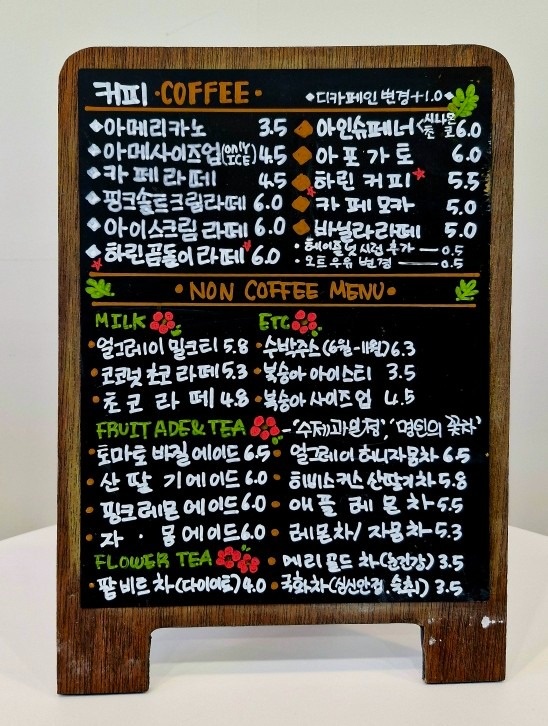 커피 · COFFEE · ◆디카페인 변경+1.0◆
◆아메리카노 3.5
◆아메사이즈업(ONLY ICE) 4.5
◆카페라떼 4.5
◆핑크솔트크림라떼 6.0
◆아이스크림 라떼 6.0
◆하린곰돌이라떼 6.0
◆아인슈페너<시나몬 초코 6.0
◆아포가토 6.0
◆하린커피 5.5
◆카페모카 5.0
◆바닐라라떼 5.0
·헤이즐넛 시럽 추가 — 0.5
·오트우유 변경 — 0.5
·NON COFFEE MENU·
MILK
·얼그레이 밀크티 5.8
·코코넛 초코라떼 5.3
·초코라떼 4.8
ETC
·수박주스(6월-11월) 6.3
·복숭아 아이스티 3.5
·복숭아 사이즈업 4.5
FRUIT ADE&TEA -'수제과일청','명인의 꽃차'
·토마토 바질에이드 6.5
·산딸기에이드 6.0
·핑크레몬에이드 6.0
·자·몽에이드 6.0
·얼그레이 허니자몽차 6.5
·히비스커스 산딸기차 5.8
·애플레몬차 5.5
·레몬차/자몽차 5.3
FLOWER TEA
·팥비트차(다이어트) 4.0
·메리골드차(눈건강) 3.5
·국화차(심신안정, 숙취) 3.5